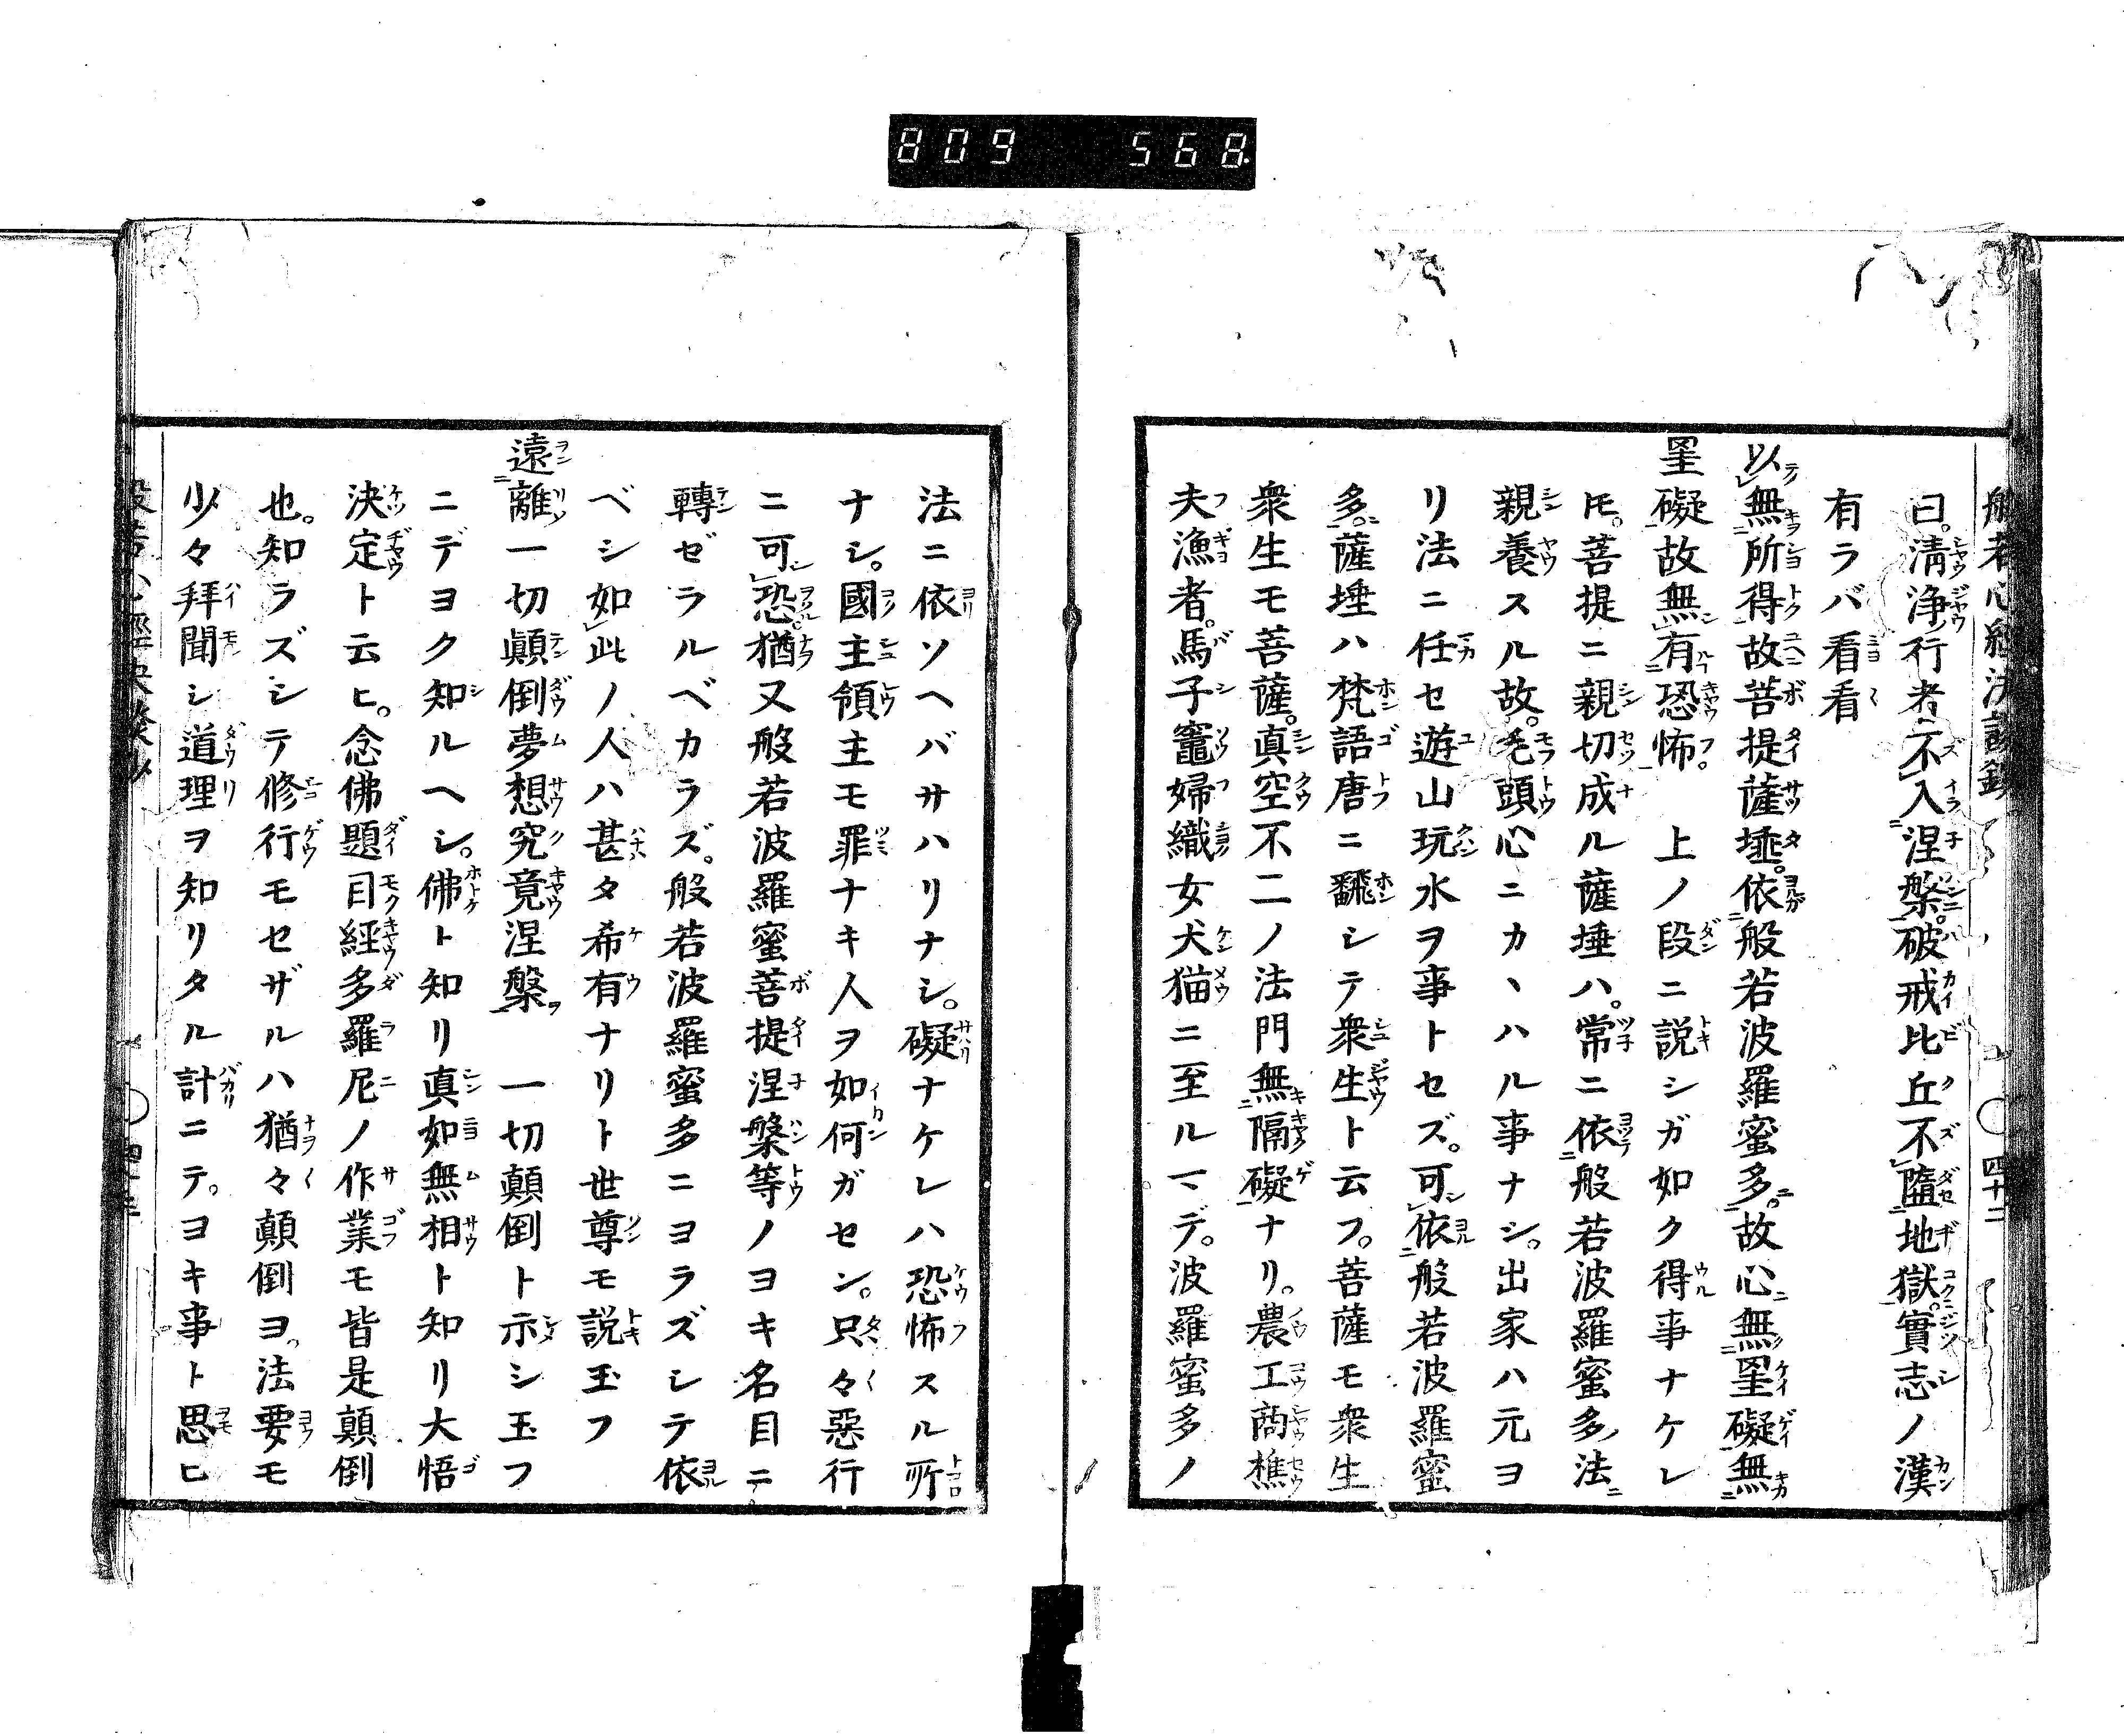 809 568
四十二
曰。淸淨行者不入涅槃。破戒比丘不墮地獄。實志ノ漢
有ラバ看看
以無所得故菩提薩埵。依般若波羅蜜多。故心無罣礙無
罣礙故無有恐怖。 上ノ段ニ説シガ如ク得事ナケレ
𪜈。菩提ニ親切成ル薩埵ハ。常ニ依般若波羅蜜多法
親養スル故。毛頭心ニカヽハル事ナシ。出家ハ元ヨ
リ法ニ任セ遊山玩水ヲ事トセズ。可依般若波羅蜜
多。薩埵ハ梵語唐ニ飜シテ衆生ト云フ。菩薩モ衆生
衆生モ菩薩。真空不二ノ法門無隔礙ナリ。農工商樵
夫漁者。馬子竈婦織女犬猫ニ至ルマデ。波羅蜜多ノ
法ニ依ソヘバサハリナシ。礙ナケレハ恐怖スル所
ナシ。國主領主モ罪ナキ人ヲ如何ガセン。只々惡行
ニ可恐。猶又般若波羅蜜菩提涅槃等ノヨキ名目ニ
轉ゼラルベカラズ。般若波羅蜜多ニヨラズシテ依
ベシ如此ノ人ハ甚タ希有ナリト世尊モ説玉フ
遠離一切顚倒夢想究竟涅槃 一切顛倒ト示シ玉フ
ニデヨク知ルヘシ。佛ト知リ真如無相ト知リ大悟
決定ト云ヒ。念佛題目經多羅尼ノ作業モ皆是顛倒
也。知ラズシテ修行モセザルハ猶々顛倒ヨ。法要モ
少々拜聞シ道理ヲ知リタル計ニテ。ヨキ事ト思ヒ